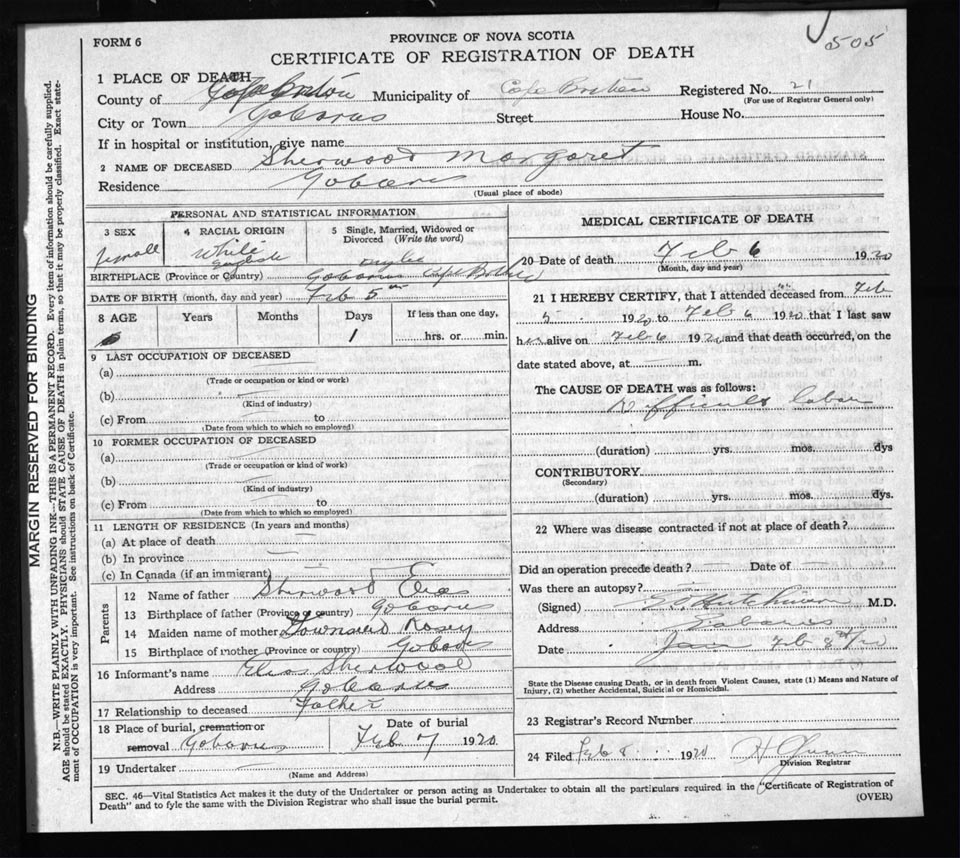 505
FORM 6
PROVINCE OF NOVA SCOTIA
CERTIFICATE OF REGISTRATION OF DEATH
1 PLACE OF DEATH
County of Cape Breton Municipality of Cape Breton Registered No. 21
(For use of Registrar General only)
City or Town Gabarus Street House No.
If in hospital or institution, give name
2 NAME OF DECEASED Sherwood Margaret
Residence Gabarus
(Usual place of abode)
PERSONAL AND STATISTICAL INFORMATION
3 SEX 4 RACIAL ORIGIN 5 Single, Married, Widowed or Divorced (Write the word)
female White English single
BIRTHPLACE (Province or Country) Gabarus Cape Breton
DATE OF BIRTH (month, day and year) Feb 5
8 AGE Years Months Days If less than one day,
1 hrs. or min.
9 LAST OCCUPATION OF DECEASED
(a)
(Trade or occupation or kind or work)
(b)
(Kind of industry)
(c) From to
(Date from which to which so employed)
10 FORMER OCCUPATION OF DECEASED
(a)
(Trade or occupation or kind of work)
(b)
(Kind of industry)
(c) From to
(Date from which to which so employed)
11 LENGTH OF RESIDENCE (In years and months)
(a) At place of death
(b) In province
(c) In Canada (if an immigrant)
Parents
12 Name of father Sherwood Elias
13 Birthplace of father (Province or country) Gabarus
14 Maiden name of mother Townsend Rosey
15 Birthplace of mother (Province or country) Gabarus
16 Informant's name Elias Sherwood
Address Gabarus
17 Relationship to deceased Father
18 Place of burial, cremation or removal Gabarus Date of burial Feb 7 1920
19 Undertaker
(Name and Address)
MEDICAL CERTIFICATE OF DEATH
20 Date of death Feb 6 1920
(Month, day and year)
21 I HEREBY CERTIFY, that I attended deceased from Feb
5 1920 to Feb 6 1920 that I last saw
her alive on Feb 6 1920 and that death occurred, on the
date stated above, at m.
The CAUSE OF DEATH was as follows:
Difficult labour
(duration) yrs. mos. dys
CONTRIBUTORY
(Secondary)
(duration) yrs. mos. dys.
22 Where was disease contracted if not at place of death?
Did an operation precede death? Date of
Was there an autopsy?
(Signed) Hutchinson M.D.
Address Gabarus
Date Feb 8
State the Disease causing Death, or in death from Violent Causes, state (1) Means and Nature of
Injury, (2) whether Accidental, Suicidal or Homicidal.
23 Registrar's Record Number
24 Filed Feb 8 1920 H Gunn
Division Registrar
SEC. 46—Vital Statistics Act makes it the duty of the Undertaker or person acting as Undertaker to obtain all the particulars required in the "Certificate of Registration of
Death" and to fyle the same with the Division Registrar who shall issue the burial permit.
(OVER)
MARGIN RESERVED FOR BINDING
N.B.—WRITE PLAINLY WITH UNFADING INK—THIS IS A PERMANENT RECORD. Every item of information should be carefully supplied.
AGE should be stated EXACTLY. PHYSICIANS should STATE CAUSE OF DEATH in plain terms, so that it may be properly classified. Exact state-
ment of OCCUPATION is very important. See instructions on back of Certificate.